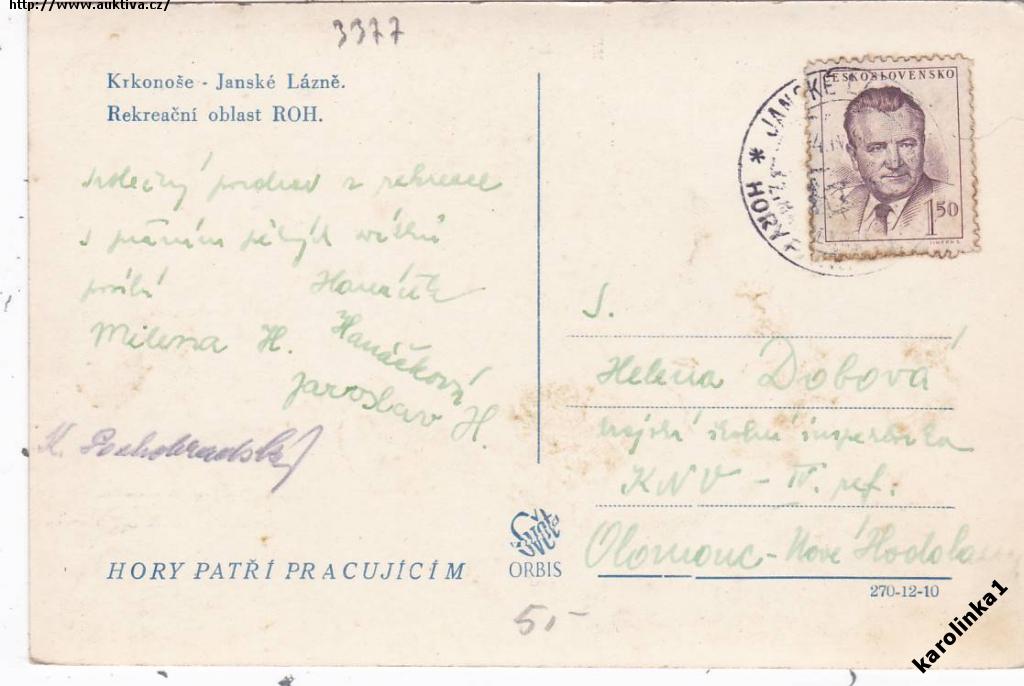 http://www.auktiva.cz/
3377
Krkonoše - Janské Lázně.
Rekreační oblast ROH.
Srdečný pozdrav z rekreace
s přáním pěkných
Milena H. Hanáčková
Jaroslav H.
HORY PATŘÍ PRACUJÍCÍM
ORBIS
50,-
ČESKOSLOVENSKO
1 50
* JANSKÉ
HORY
S.
Helena Dobová
krajská školní inspektorka
KNV - IV. ref.
Olomouc - Nové Hodolany
270-12-10
karolinka1